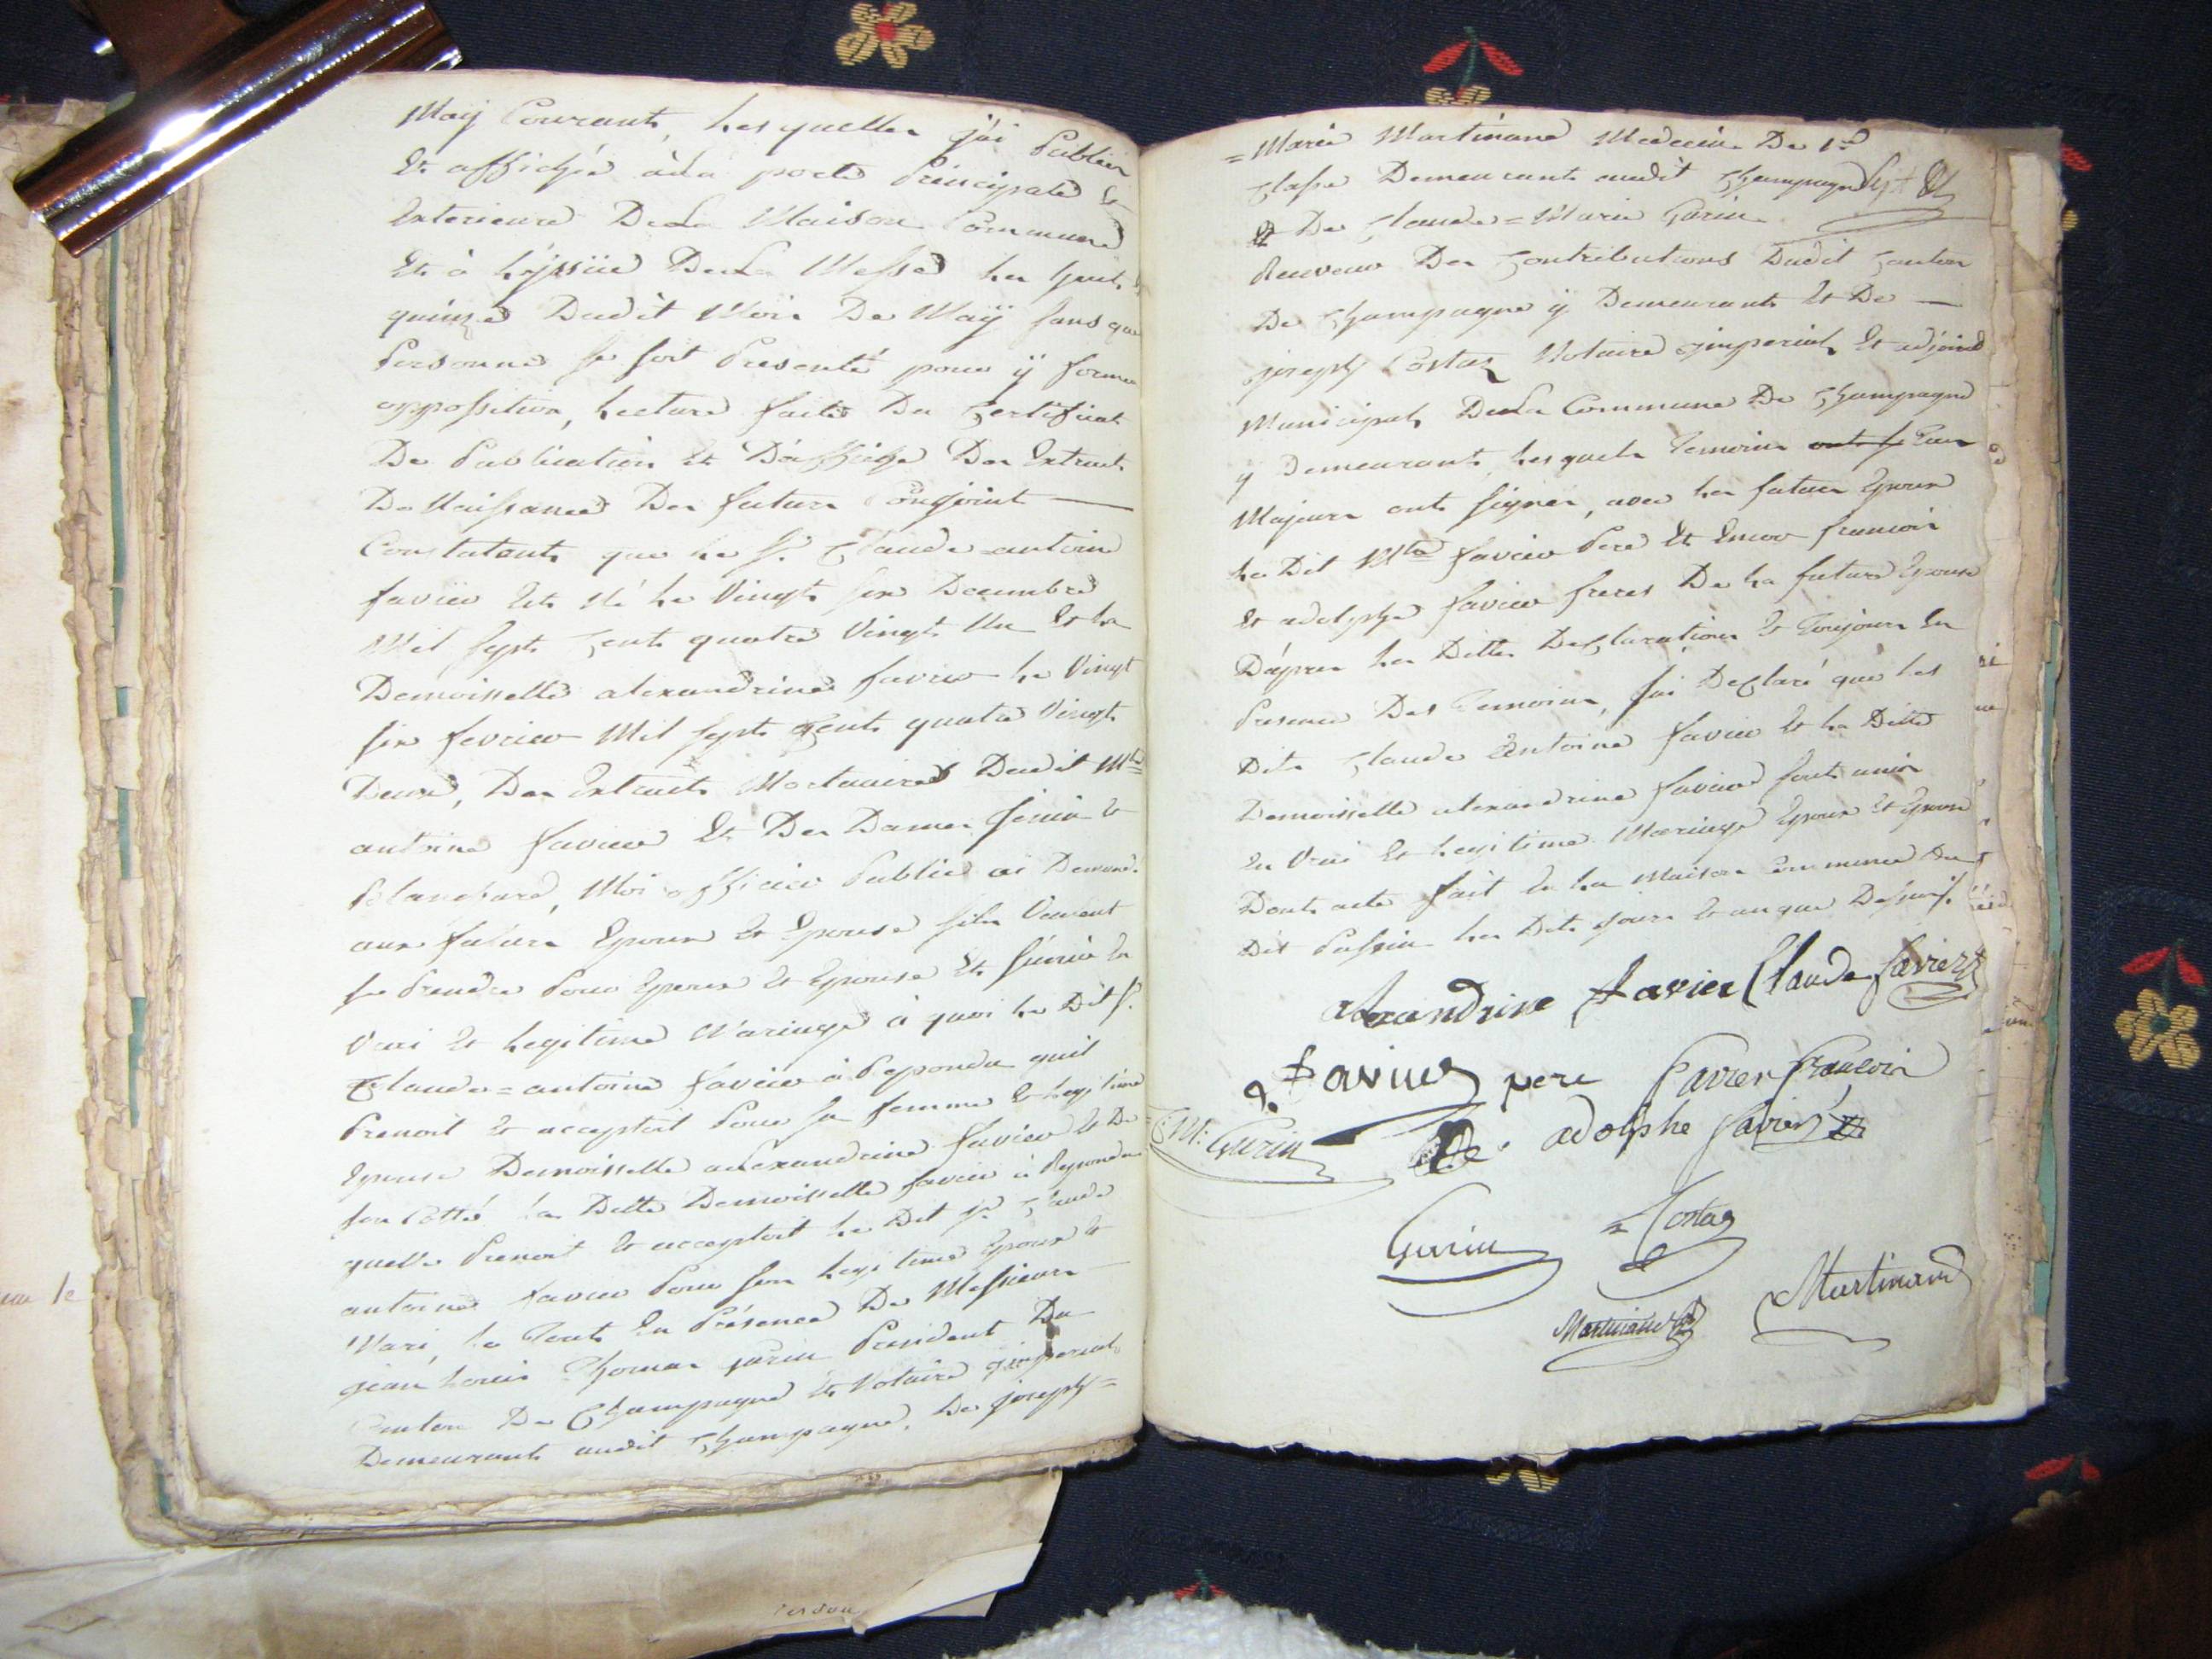 May Courant, Lesquelles j'ai Publiées
Et affichée à la porte Principale Et
Exterieure De La Maison Commune
Et à L'ÿssüe De La Messe Les huit Et
quinze Dudit Mois De Maÿ sans que
Personne se soit Presenté pour ÿ former
oppossition, Lecture faite Du Certificat
De Publication Et D'affiche Des Extraits
De Naissance Des futurs Conjoint
Constatant que Le Sr. Claude=antoine
favier Est Né Le Vingt six Decembre
Mil sept Cent quatre Vingt Un Et La
Demoisselle alexandrine favier Le Vingt
six fevrier Mil sept Cent quatre Vingt
Deux, Des Extraits Mortuaires Dudit Mtre
antoine favier Et Des Dames
Blanchard, Moi officier Public ai Demandé
aux futurs Epoux Et Epouse sils Veulent
se Prendre Pour Epoux Et Epouse Et s'ünir En
Vrai Et Legitime Mariage à quoi Le Dit Sr.
Claude=antoine favier à Repondu quil
Prenoit Et acceptoit Pour sa femme Et Legitime
Epouse Demoisselle alexandrine favier Et De
son Cotté La Ditte Demoisselle favier à Repondu
quelle Prenoit Et acceptoit Le Dit Sr. Claude
antoine favier Pour son Legitime Epoux Et
Mari, Le Tout En Présence De Messieurs
jean Louis Thomas President Du
Canton De Champagne Et Notaire jmperial
Demeurant audit Champagne, De joseph=
=Marie Martinand Medecin De 1re
Classe Demeurant audit Champagne
Et De Claude=Marie Garin
Receveur Des Contributions Dudit Canton
De Champagne ÿ Demeurant Et De
joseph Costaz Notaire jmperial Et adjoint
Municipal De La Commune De Champagne
y Demeurant, Lesquels Temoins ont se Tous
Majeurs ont signés, avec Les futurs Epoux
Le Dit Mtre favier Pere Et Encor francois
Et adolphe favier freres De La future Epouse
D'apres Les Dittes Declarations Et Toujours En
Presence Des Temoins, j'ai Declaré que Les
Dits Claude Antoine favier Et La Ditte
Demoisselle alexandrine favier sont unis
En Vrai Et Legitime Mariage Epoux Et Epouse
Dont acte fait En La Maison Commune Du
Dit Les Dits jours Et an que Dessus.
alexandrine favier Claude favier
favier pere favier francois
C M: Garin adolphe favier
Garin =Costaz
Martinand Martinand